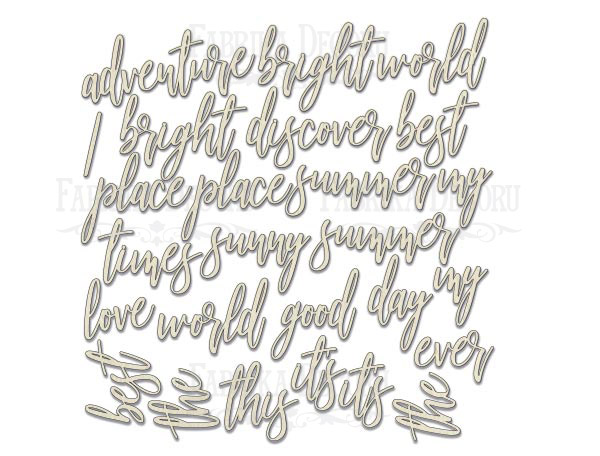 FABRIKA DECORU
adventure bright world
I bright discover best
place place summer my
FABRIKA DECORU FABRIKA DECORU
times sunny summer
love world good day my
ever
best the this it's it's the
FABRIKA DECORU